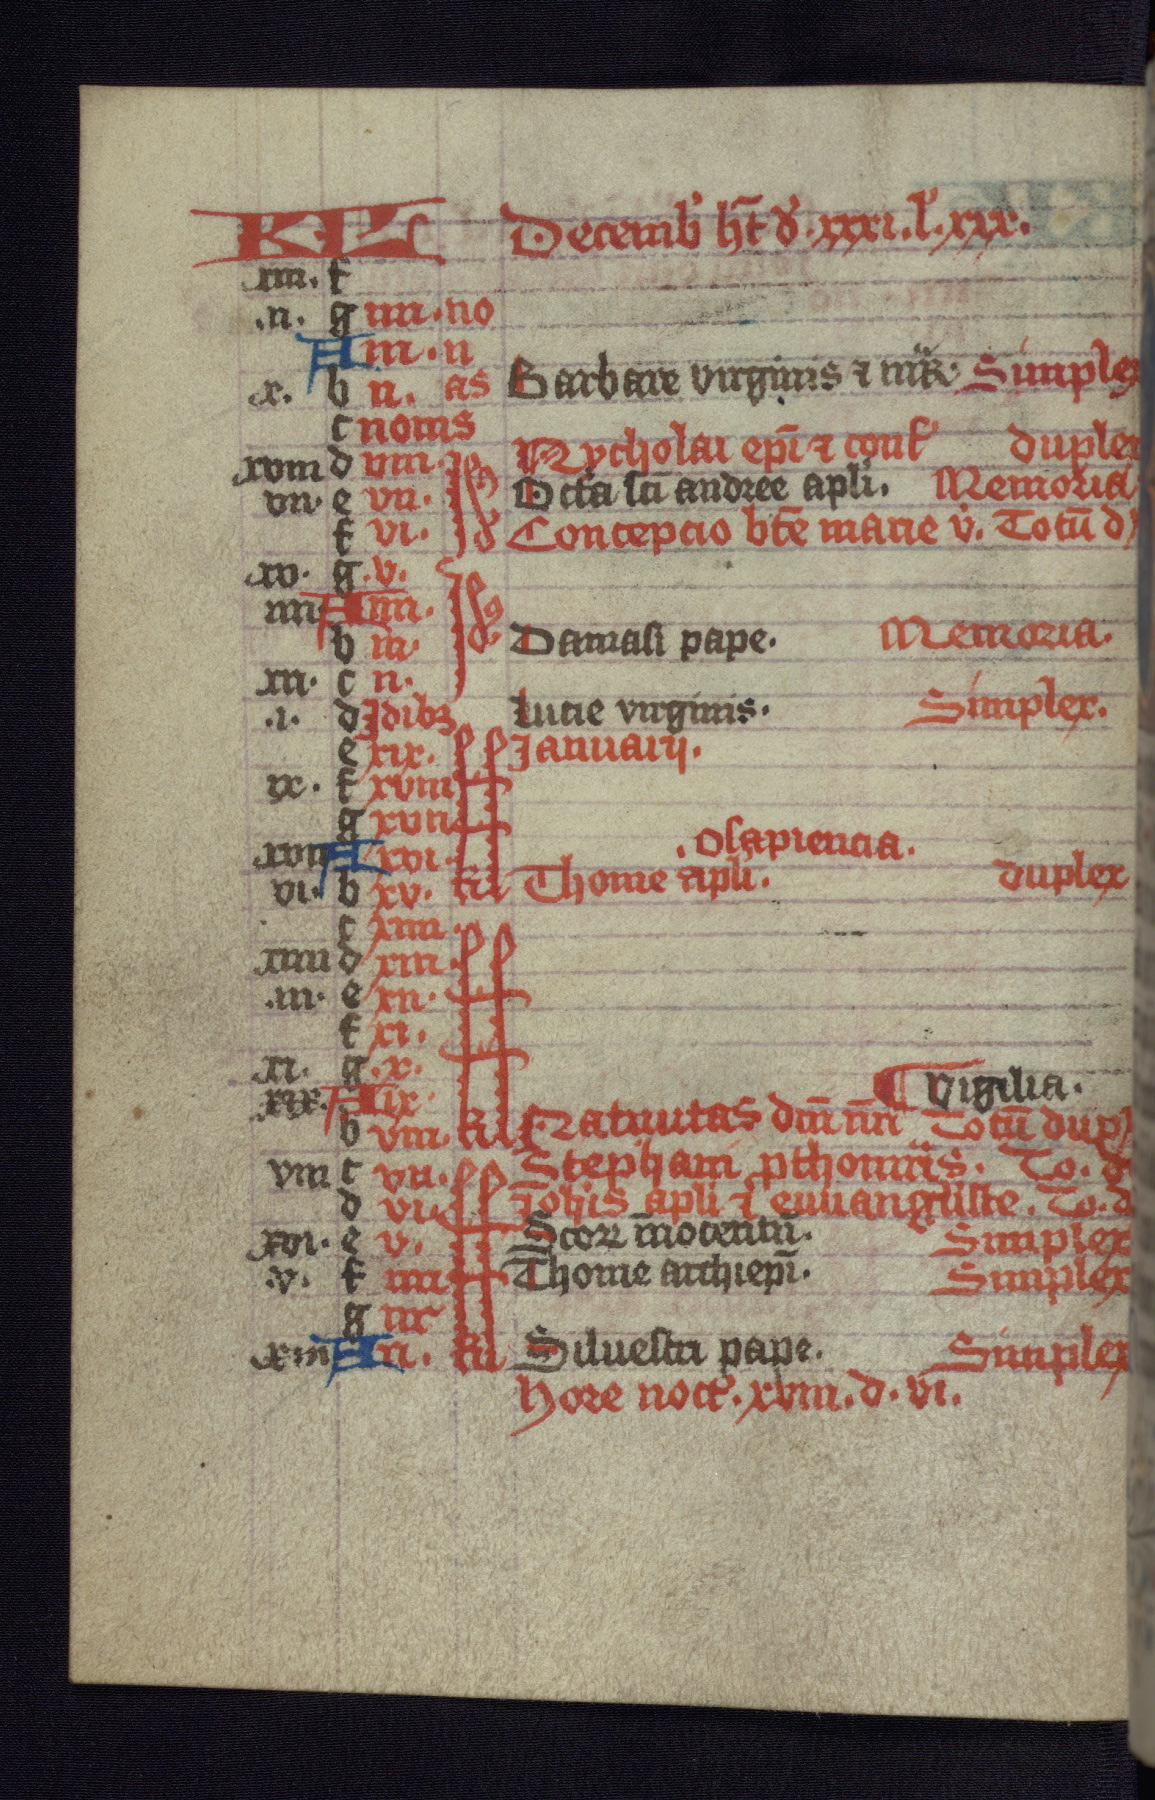 KL Decemb' h̄t d' .xxxi. l'. xxx.
xiii. f
.ii. g iiii. no
A iii. n
x. b ii. as Barbare virginis ⁊ m̄r̄. Simplex
c nonis
xviii d viii. Id' Nycholai ep̄i ⁊ conf' duplex
vii. e vii. Octā sc̄i andree apl̄i. Memoria
f vi. Concepcio bt̄e marie v̄. Totū d
xv. g .v.
iiii A iiii. Id'
b iii. Damasi pape. Memoria.
xii. c ii.
.i. d Idibꝫ Lucie virginis. Simplex.
e xix. Januarij.
ix. f xviii
g xvii
xvii A xvi. .O sapiencia.
vi. b xv. kl' Thome apl̄i. duplex
c xiiii
xiiii d xiii.
.iii. e xii.
f xi.
xi. g .x.
xix. A ix. ¶ Vigilia.
b viii. kl' Natiuitas dn̄i nr̄i Totū dupl
viii c vii. Stephani ꝓthom̄ris. To. d
d vi. Joh̄is apl̄i ⁊ euuangeliste. To. d
xvi. e v. Scōꝝ īnocentū. Simplex
.v. f iiii Thome archiep̄i. Simplex
g iii
xiii A ii. kl' Siluestri pape. Simplex
Hore noct'. xviii. d. vi.